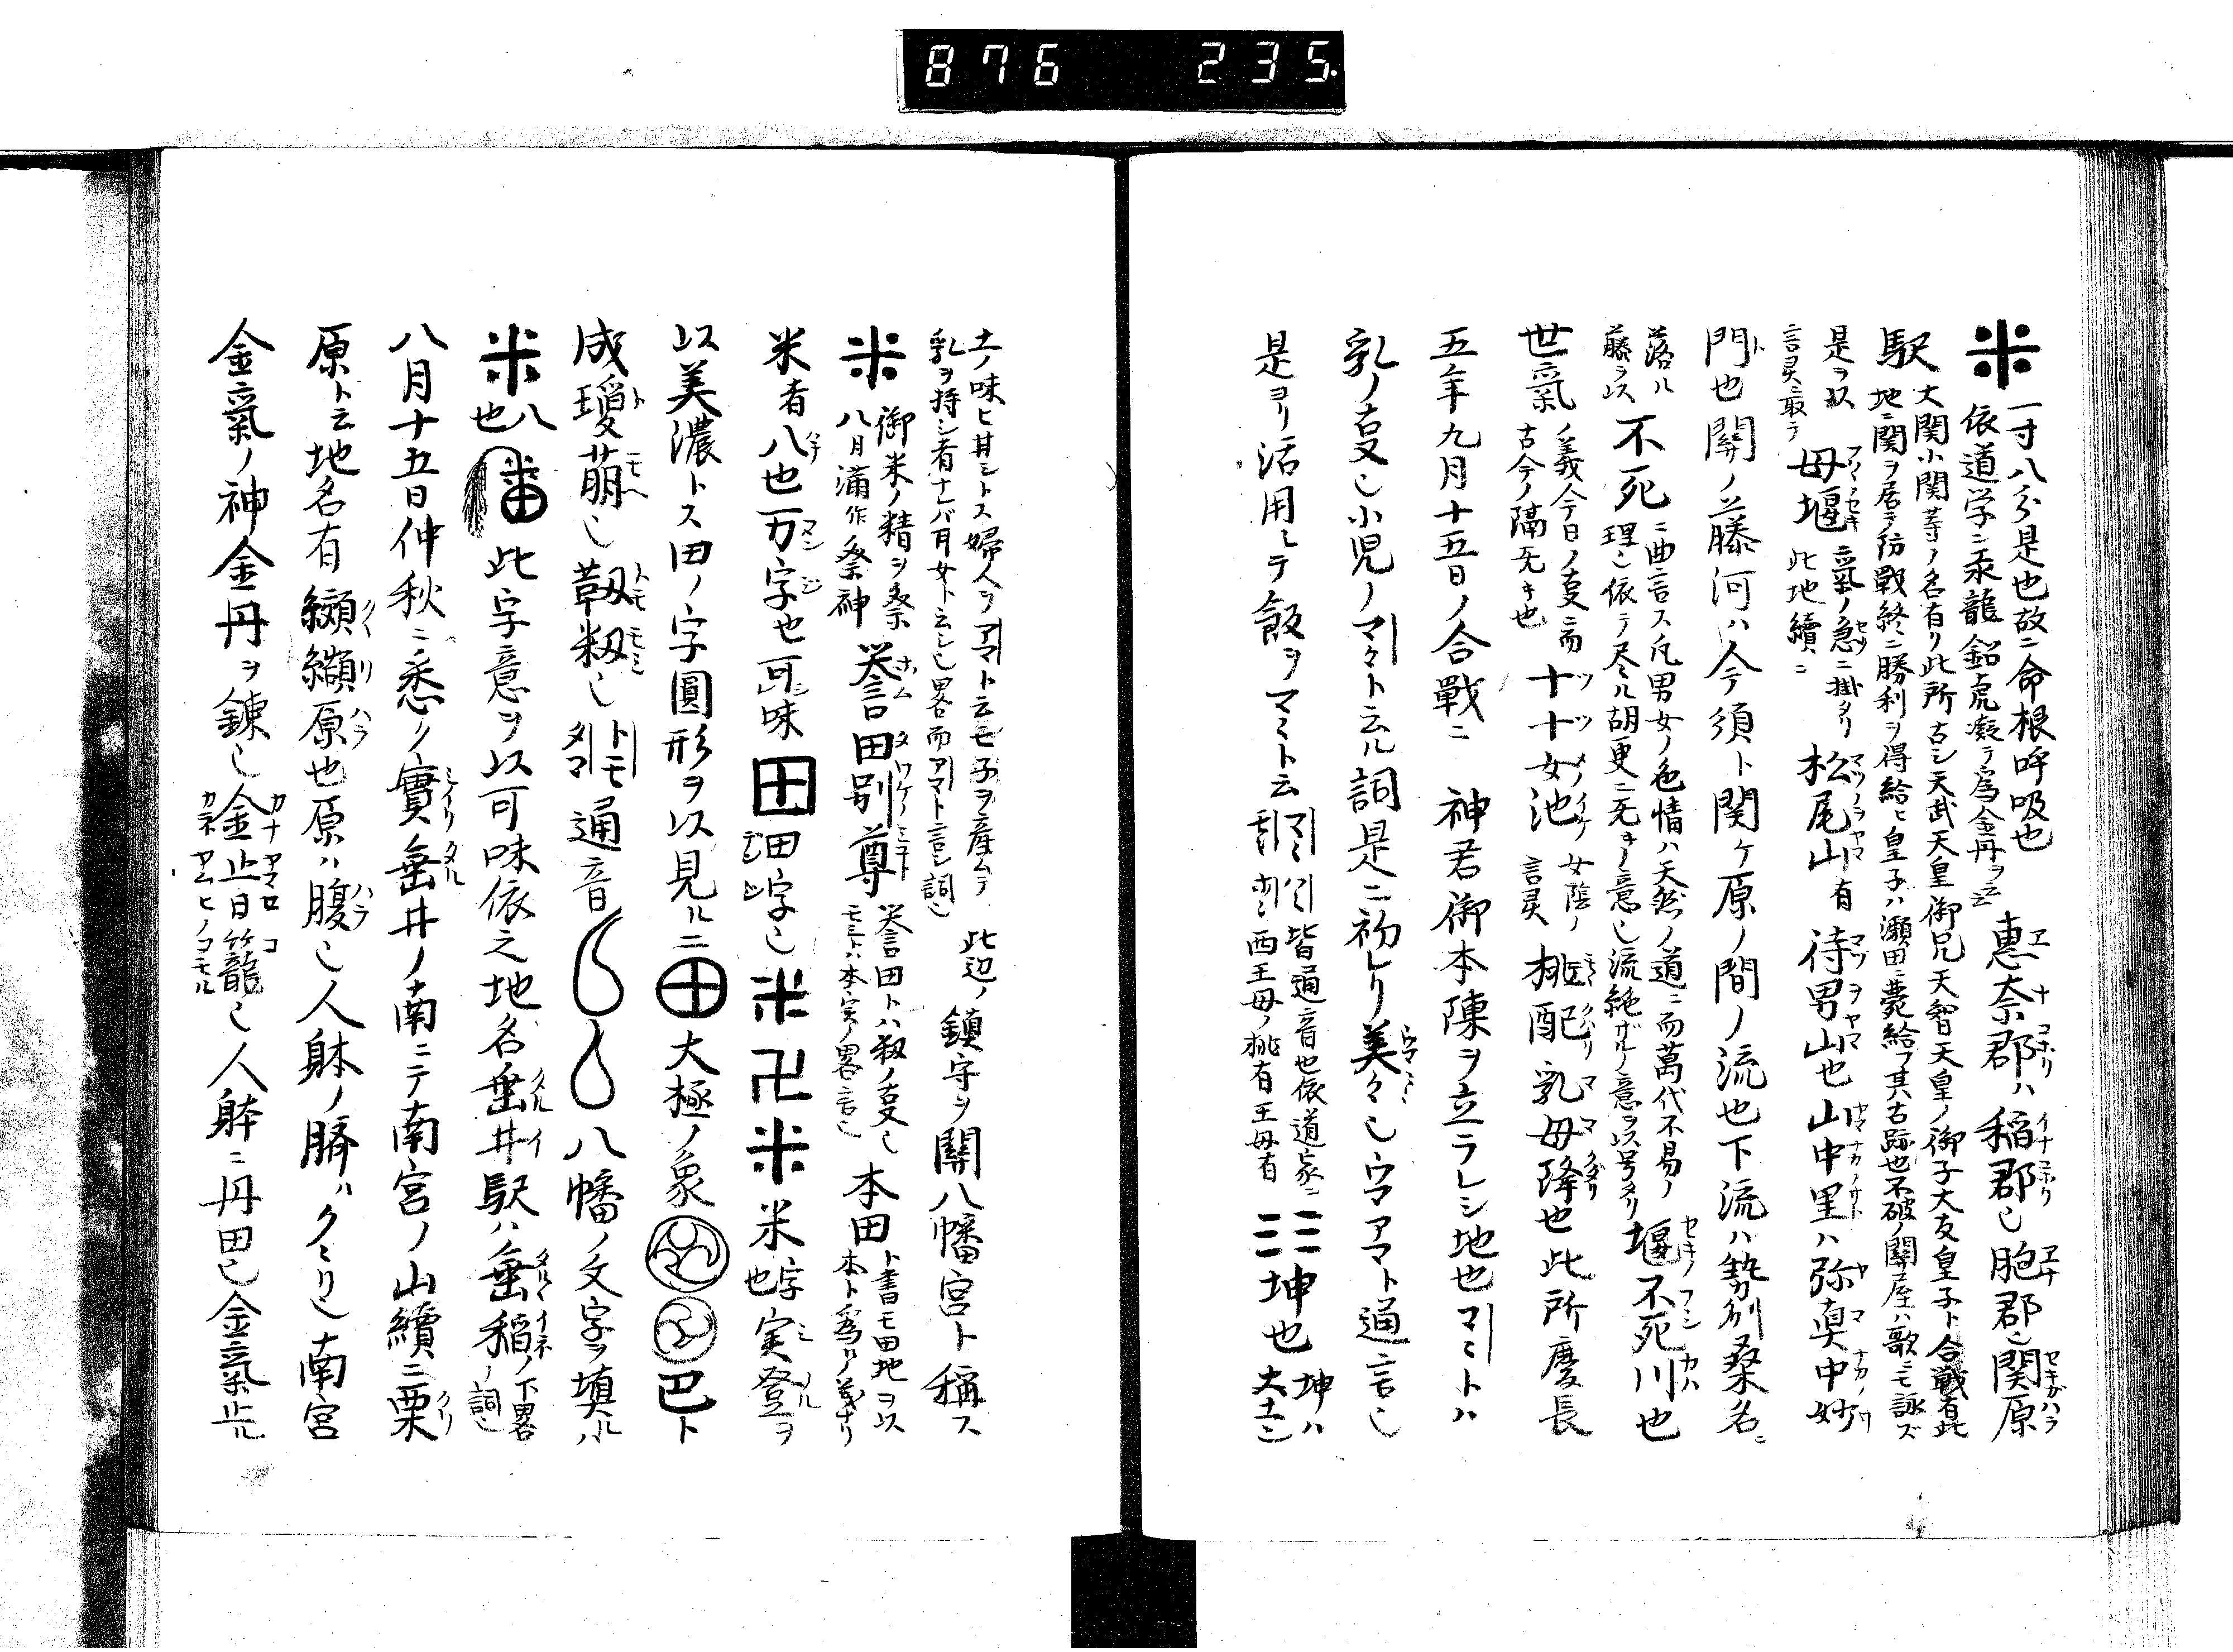 876 235.
米 一寸八分是也故ニ命根呼吸也
依道学ニ汞龍鉛虎凝テ爲金丹ヲ云 惠奈郡ハ稲郡也胞郡也関原
駅 大関小関等ノ名有リ此所古シ天武天皇御兄天智天皇ノ御子大友皇子ト合戦有此
地ニ関ヲ居テ防戦終ニ勝利ヲ得給ヒ皇子ハ瀬田ニ薨給フ其古跡也不破ノ關屋ハ歌ニモ詠ズ
是ヲ以
言灵 母堰 二氣ノ急ニ掛タリ
此地續ニ 松尾山有待男山也山中里ハ弥真中妙
門也關ノ藤河ハ今須ト関ケ原ノ間ノ流也下流ハ勢州桑名ニ
落ル
藤ヲ以 不死 ニ曲言ス凡男女ノ色情ハ天然ノ道ニ而萬代不易ノ
理ニ依テ尽ル期更ニ无キノ意也流絶ザルノ意ヲ以号タリ 堰不死川也
世氣 ノ義今日ノ叓ニ而
古今ノ隔无キ也 十十女池 女陰ノ
言灵 桃配乳母降也此所慶長
五年九月十五日ノ合戰ニ 神君御本陳ヲ立ラレシ地也マヽトハ
乳ノ叓也小児ノマヽト云ル詞是ニ初レリ美々也ウマアマト通言也
是ヨリ活用シテ飯ヲマヽト云 皆通音也依道家ニ
西王母ノ桃有王母有 ☷坤也 坤ハ
大土也
土ノ味ヒ甘シトス婦人ヲアマト云モ子ヲ産ムテ
乳ヲ持シ者ナレバ月女ト云シ也畧而アマト言シ詞也 此辺ノ鎮守ヲ關八幡宮ト稱ス
米 御米ノ精ヲ祭
八月蒲作祭神 誉田別尊 誉田トハ籾ノ叓也
モミハ本実ノ畧言也 本田 ト書モ田地ヲ以
本ト爲スノ義ナリ
米者八也万字也可味田田字也米卍米米字也実登ヲ
以美濃トス田ノ字圓形ヲ以見ルニ 大極ノ象 巴ト
成瓊萌也 通音 八幡ノ文字ヲ填ルハ
米八也 此字意ヲ以可味依之地名垂井駅ハ垂稲ノ下畧ノ詞也
八月十五日仲秋ニ悉ク實垂井ノ南ニテ南宮ノ山續ニ栗
原ト云地名有纐纈原也原ハ腹也人躰ノ臍ハクヽリ也南宮
金氣ノ神金丹ヲ錬也金止日籠也人躰ニ丹田也金氣止ル